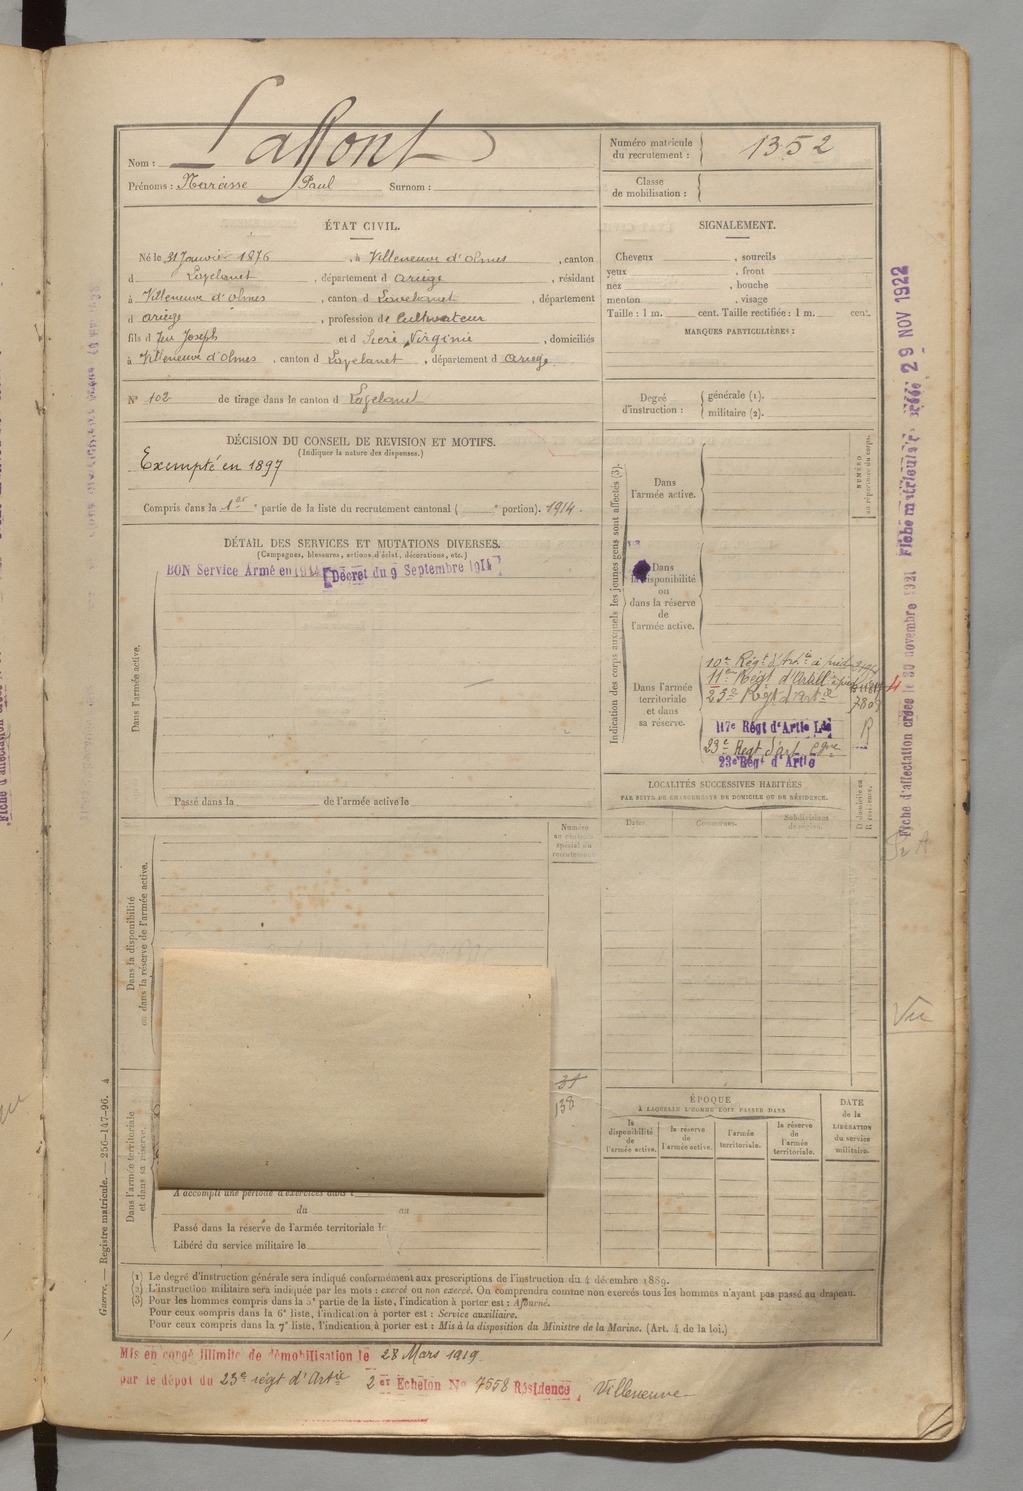 Nom : Laffont
Prénoms : Narcisse Paul Surnom :
Numéro matricule
du recrutement : 1352
Classe
de mobilisation :
ÉTAT CIVIL.
Né le 31 Janvier 1876, à Villeneuve d'Olmes, canton
d Lavelanet, département d Ariège, résidant
à Villeneuve d'Olmes, canton d Lavelanet, département
d Ariège, profession de Cultivateur
fils d feu Joseph et d Virginie, domiciliés
à Villeneuve d'Olmes, canton d Lavelanet, département d Ariège.
N° 102 de tirage dans le canton d Lavelanet
SIGNALEMENT.
Cheveux , sourcils
yeux , front
nez , bouche
menton , visage
Taille : 1 m. cent. Taille rectifiée : 1 m. cent.
MARQUES PARTICULIÈRES :
Degré
d'instruction :
générale (1).
militaire (2).
DÉCISION DU CONSEIL DE REVISION ET MOTIFS.
(Indiquer la nature des dispenses.)
Exempté en 1897
Compris dans la 1re partie de la liste du recrutement cantonal ( e portion). 1914.
DÉTAIL DES SERVICES ET MUTATIONS DIVERSES.
(Campagnes, blessures, actions d'éclat, décorations, etc.)
BON Service Armé en 1914 [Décret du 9 Septembre 1914]
Dans l'armée active.
Passé dans la de l'armée active le
Numéro
au contrôle
spécial du
recrutement
Dans la disponibilité
ou dans la réserve de l'armée active.
31
138
Dans l'armée territoriale
et dans sa réserve.
A accompli une période d'exercices dans l
du au
Passé dans la réserve de l'armée territoriale le
Libéré du service militaire le
Indication des corps auxquels les jeunes gens sont affectés (3).
NUMÉRO
au répertoire du corps.
Dans
l'armée active.
Dans
la disponibilité
ou
dans la réserve
de
l'armée active.
Dans l'armée
territoriale
et dans
sa réserve.
10e Régt d'Artie à pied
11e Régt d'Artill à pied
23e Régt d'artie
117e Régt d'Artie Lde
23e Régt d'art
23e Régt d'Artie
LOCALITÉS SUCCESSIVES HABITÉES
PAR SUITE DE CHANGEMENTS DE DOMICILE OU DE RÉSIDENCE.
Dates. Communes. Subdivisions
de région.
D domicile ou
R résidence.
ÉPOQUE
À LAQUELLE L'HOMME DOIT PASSER DANS
la
disponibilité
de
l'armée active.
la réserve
de
l'armée active.
l'armée
territoriale.
la réserve
de
l'armée
territoriale.
DATE
de la
LIBÉRATION
du service
militaire.
(1) Le degré d'instruction générale sera indiqué conformément aux prescriptions de l'instruction du 4 décembre 1889.
(2) L'instruction militaire sera indiquée par les mots : exercé ou non exercé. On comprendra comme non exercés tous les hommes n'ayant pas passé au drapeau.
(3) Pour les hommes compris dans la 5e partie de la liste, l'indication à porter est : Ajourné.
Pour ceux compris dans la 6e liste, l'indication à porter est : Service auxiliaire.
Pour ceux compris dans la 7e liste, l'indication à porter est : Mis à la disposition du Ministre de la Marine. (Art. 4 de la loi.)
Mis en congé illimité de démobilisation le 28 Mars 1919
par le dépot du 23e régt d'Artie 2e Echelon No 7558 Résidence, Villeneuve
Guerre. — Registre matricule. — 256-147-96. 4
Fiche d'affectation créée le 30 novembre 1921 Fiche matricule créée 29 NOV 1922
Vu